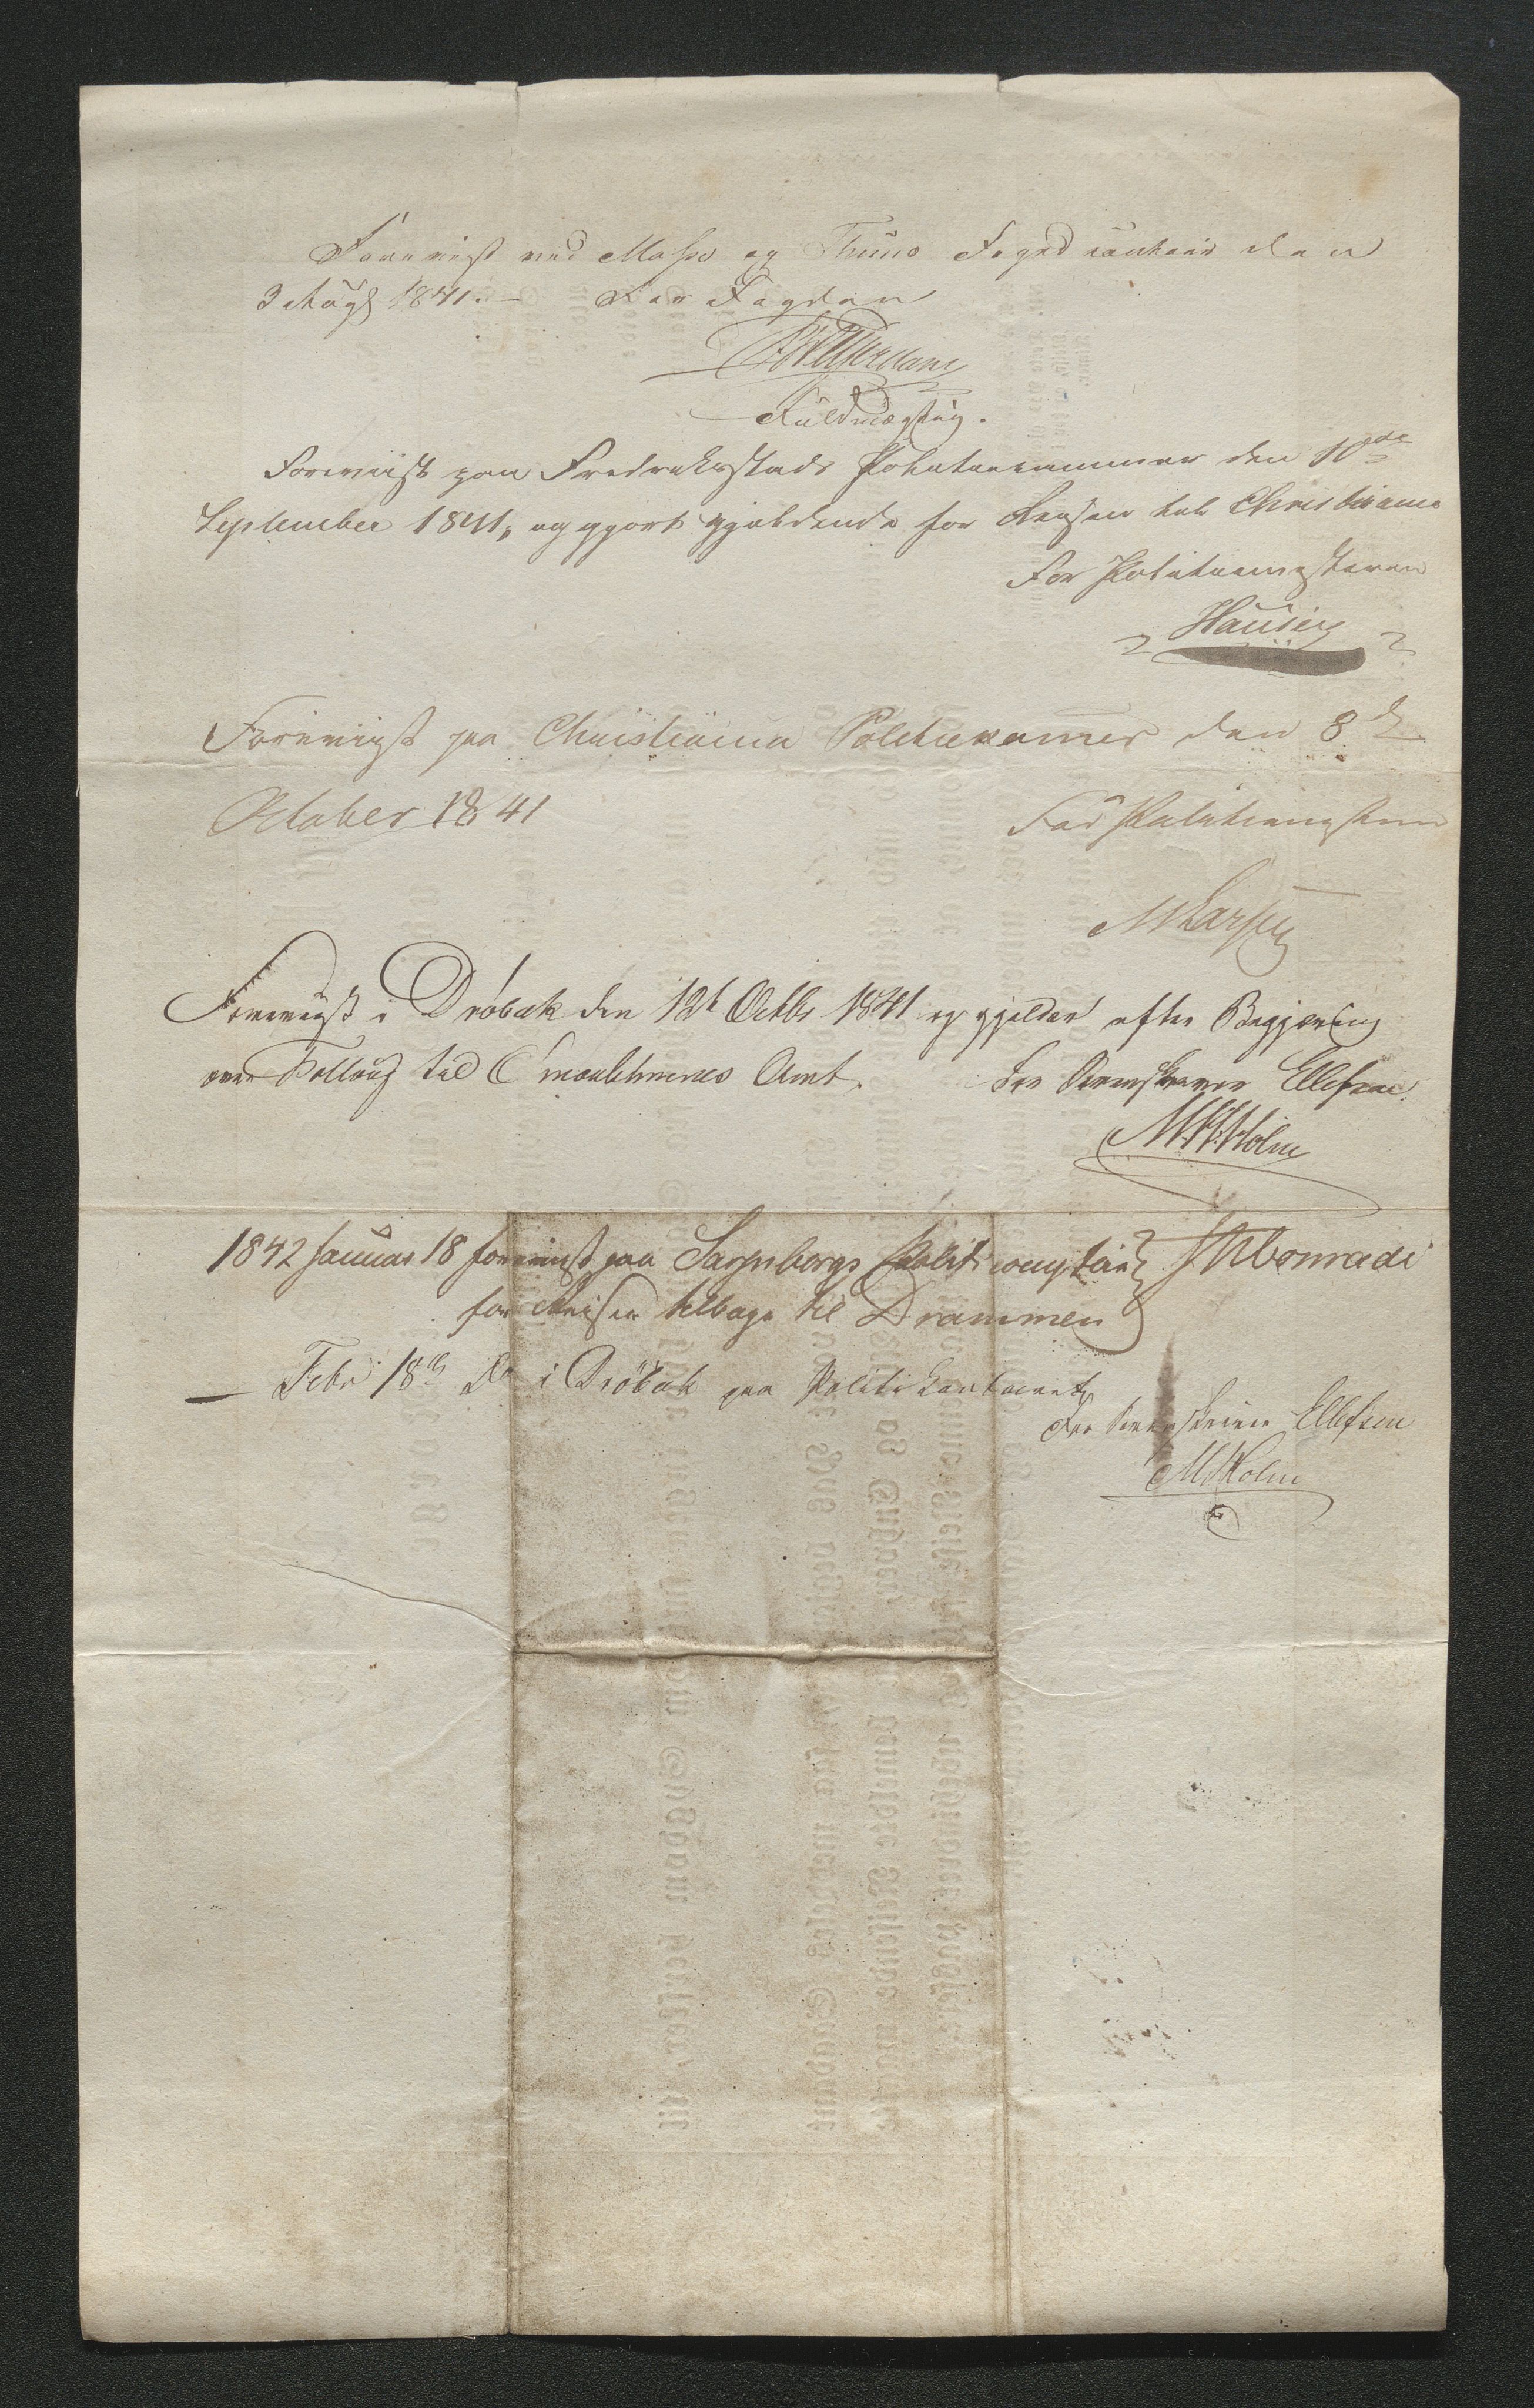 Foreviist ved Moss og Thunø Foged contoir den
3 Augs 1841. – For Fogden
Fuldmægtig.
Foreviist paa Fredrikstads Politiekammer den 10de
September 1841, og gjort gjældende for Reisen til Christiania
For Politiemesteren
Hansen
Foreviist paa Christiania Politiekammer den 8de
October 1841
For Politiemesteren
M Larsen
Foreviist i Drøbak den 12t Octbr 1841 og gjelder efter Begjæring
over Folloug til Smaalehnenes Amt.
For Sorenskriver Ellefsen
M. H. Holm
1842 Januar 18 foreviist paa Sarpsborgs Politicomptoir
for Reisen tilbage til Drammen
Conradi
— Febr 18de Do i Drøbak paa Politi Contoiret
For Sorenskriver Ellefsen
M H Holm